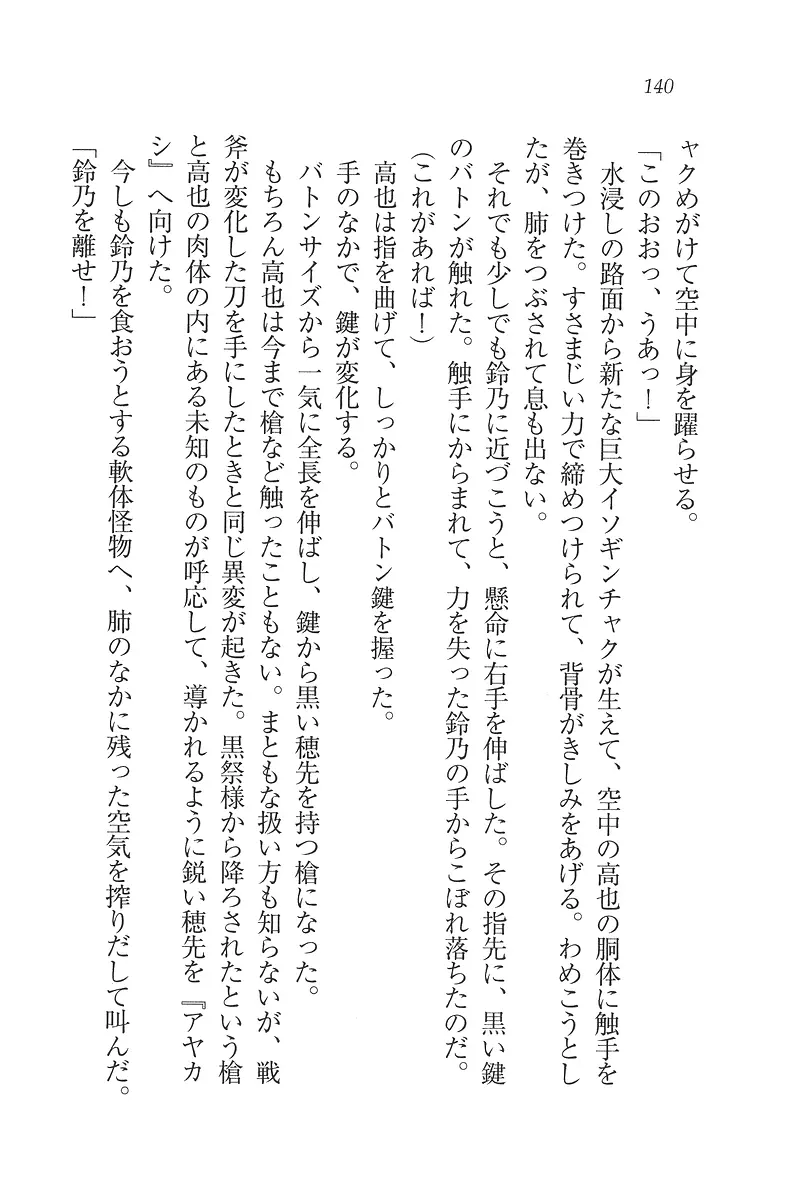 140
ャクめがけて空中に身を躍らせる。
「このおおっ、うあっ！」
水浸しの路面から新たな巨大イソギンチャクが生えて、空中の高也の胴体に触手を
巻きつけた。すさまじい力で締めつけられて、背骨がきしみをあげる。わめこうとし
たが、肺をつぶされて息も出ない。
それでも少しでも鈴乃に近づこうと、懸命に右手を伸ばした。その指先に、黒い鍵
のバトンが触れた。触手にからまれて、力を失った鈴乃の手からこぼれ落ちたのだ。
(これがあれば！)
高也は指を曲げて、しっかりとバトン鍵を握った。
手のなかで、鍵が変化する。
バトンサイズから一気に全長を伸ばし、鍵から黒い穂先を持つ槍になった。
もちろん高也は今まで槍など触ったこともない。まともな扱い方も知らないが、戦
斧が変化した刀を手にしたときと同じ異変が起きた。黒祭様から降ろされたという槍
と高也の肉体の内にある未知のものが呼応して、導かれるように鋭い穂先を『アヤカ
シ』へ向けた。
今しも鈴乃を食おうとする軟体怪物へ、肺のなかに残った空気を搾りだして叫んだ。
「鈴乃を離せ！」